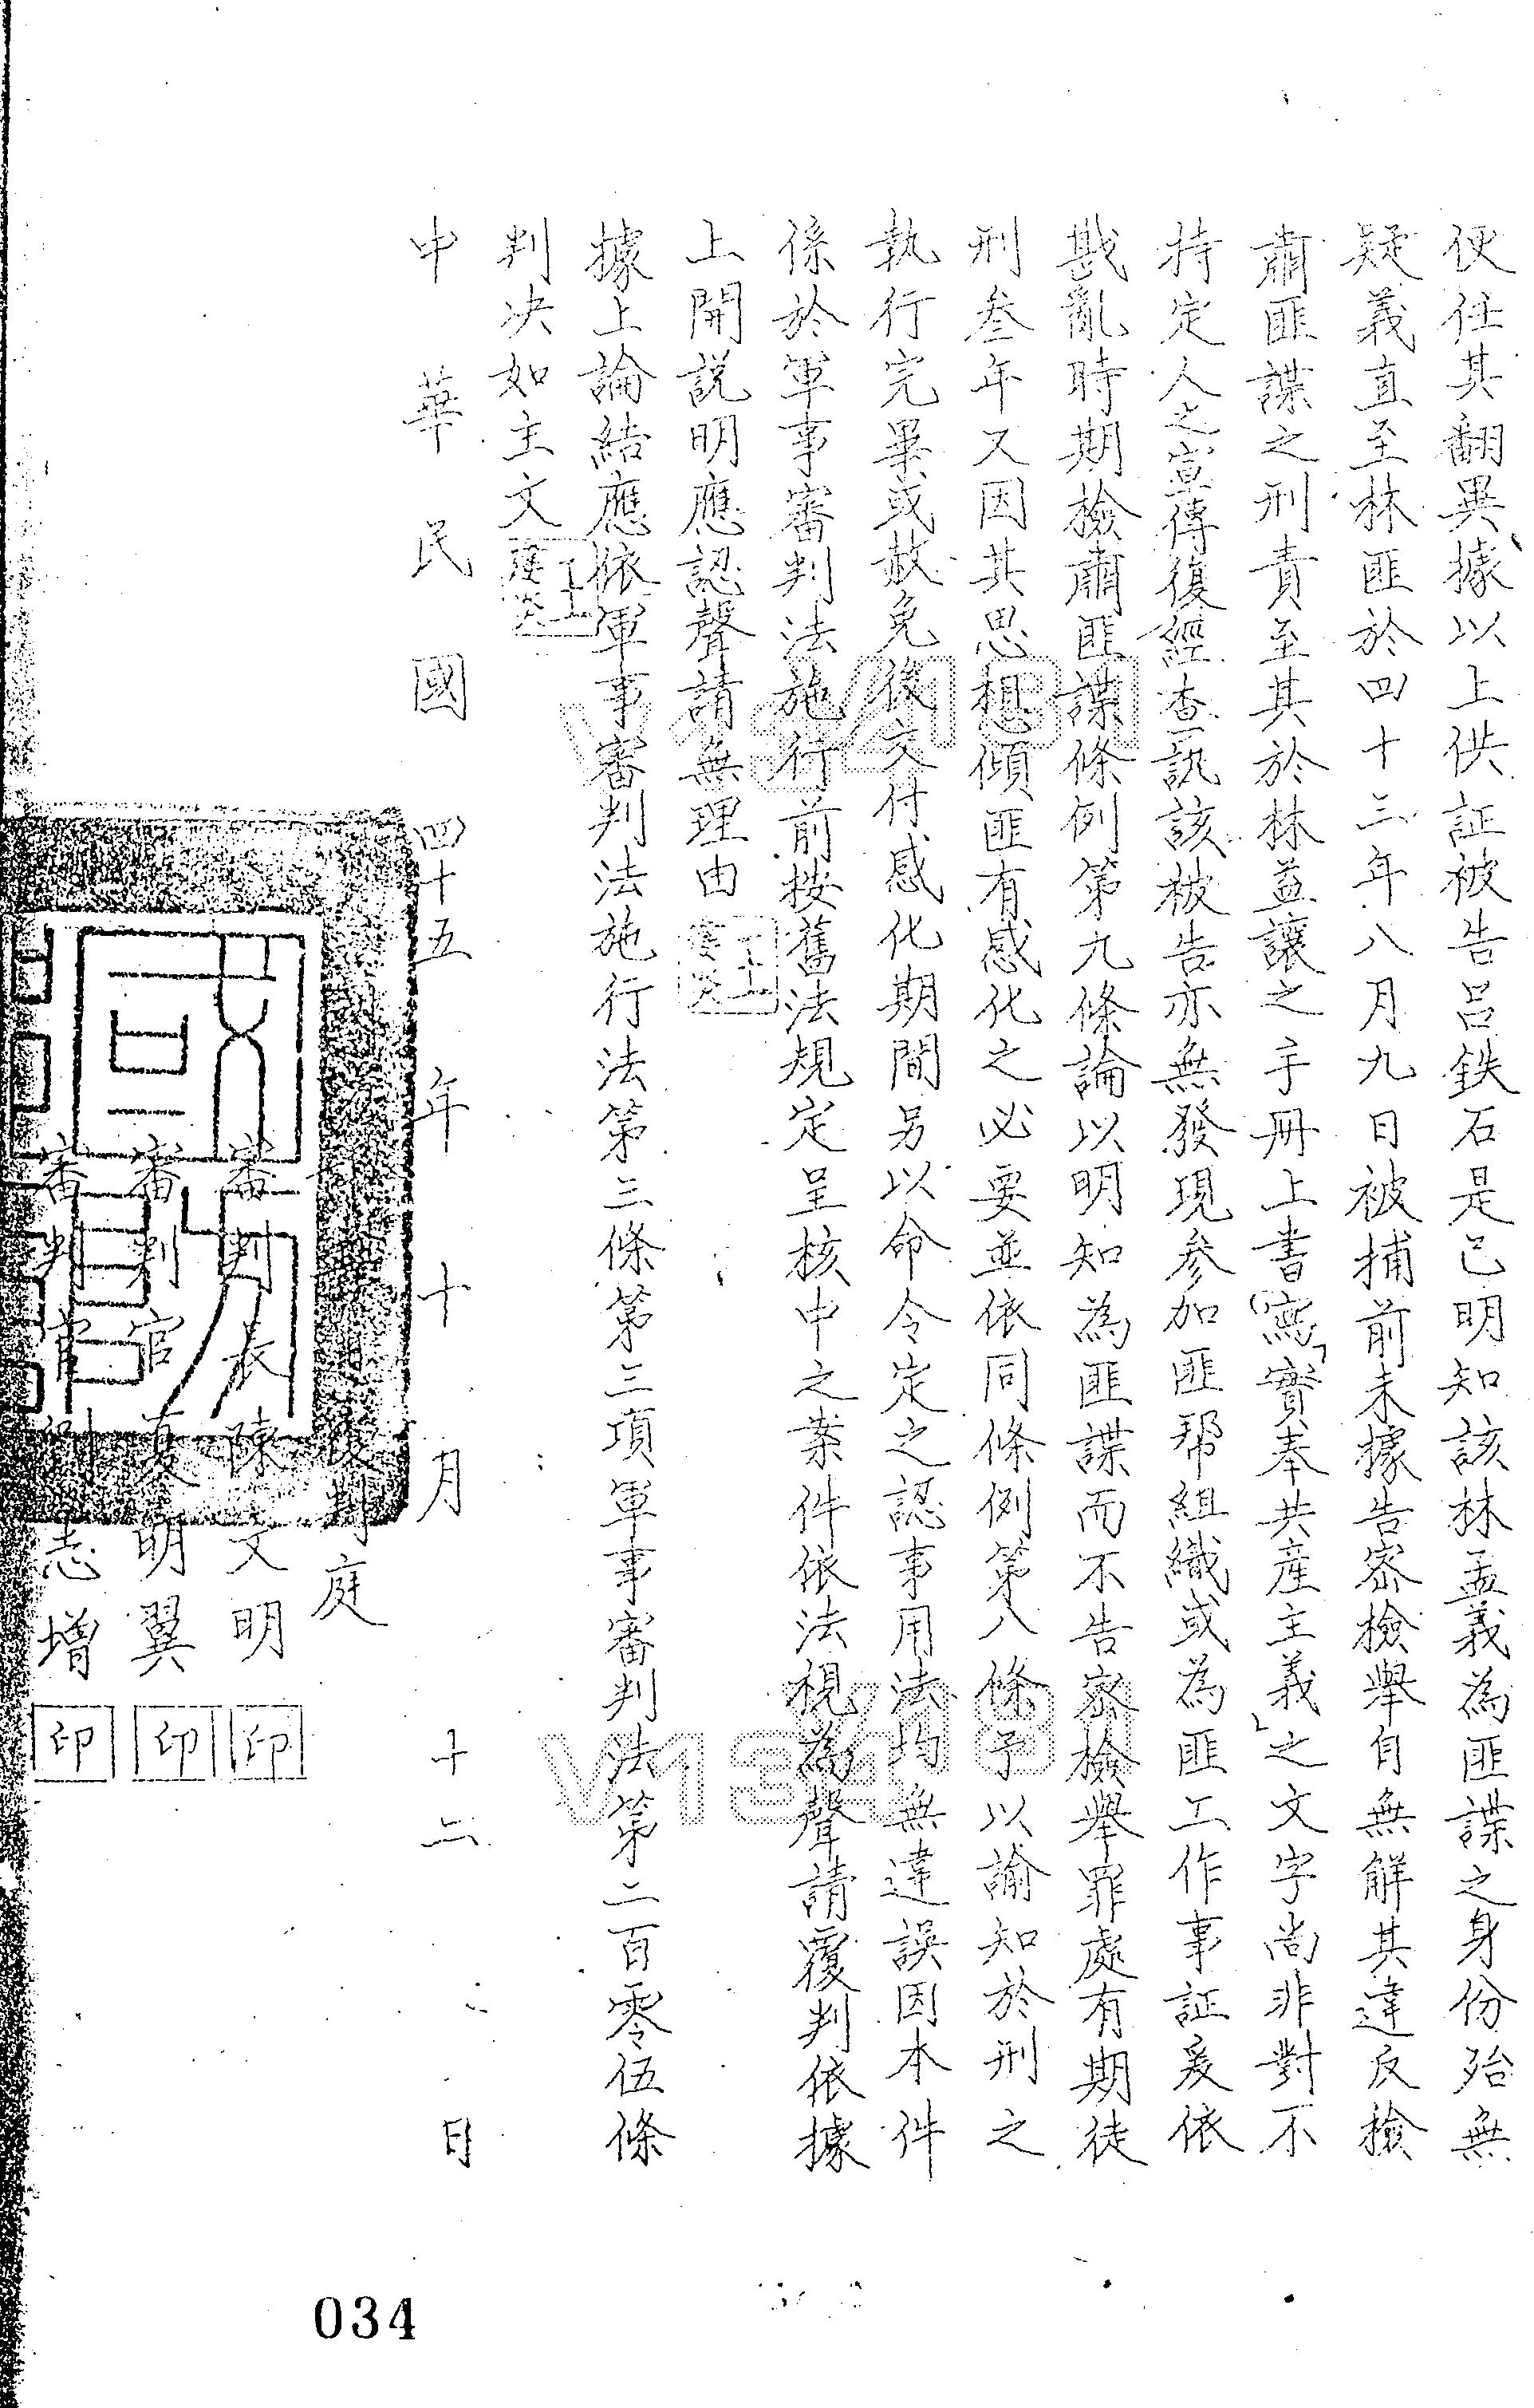 便任其翻異據以上供証被告呂鉄石是已明知該林孟義為匪諜之身份殆無
疑義直至林匪於四十三年八月九日被捕前未據告密檢舉自無解其違反檢
肅匪諜之刑責至其於林益讓之手冊上書寫「實奉共產主義」之文字尚非對不
持定人之宣傳復經查訊該被告亦無發現參加匪帮組織或為匪工作事証爰依
戡亂時期檢肅匪諜條例第九條論以明知為匪諜而不告密檢舉罪處有期徒
刑叁年又因其思想傾匪有感化之必要並依同條例第八條予以諭知於刑之
執行完畢或赦免後交付感化期間另以命令定之認事用法均無違誤因本件
係於軍事審判法施行前按舊法規定呈核中之案件依法視為聲請覆判依據
上開説明應認聲請無理由
據上論結應依軍事審判法施行法第三條第三項軍事審判法第二百零伍條
判決如主文
中華民國四十五年十月十二日
覆判庭
審判長陳文明印
審判官夏明翼印
審判官志增印
V13481
V13481
034